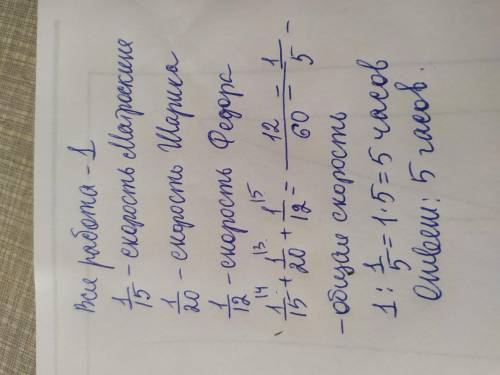 Вся работа - 1
1/15 - скорость Матроскина
1/20 - скорость Шарика
1/12 - скорость Федора
1/15 ^14 + 1/20 ^13 + 1/12 ^15 = 12/60 = 1/5 -
- общая скорость
1 : 1/5 = 1 · 5 = 5 часов
Ответ: 5 часов.